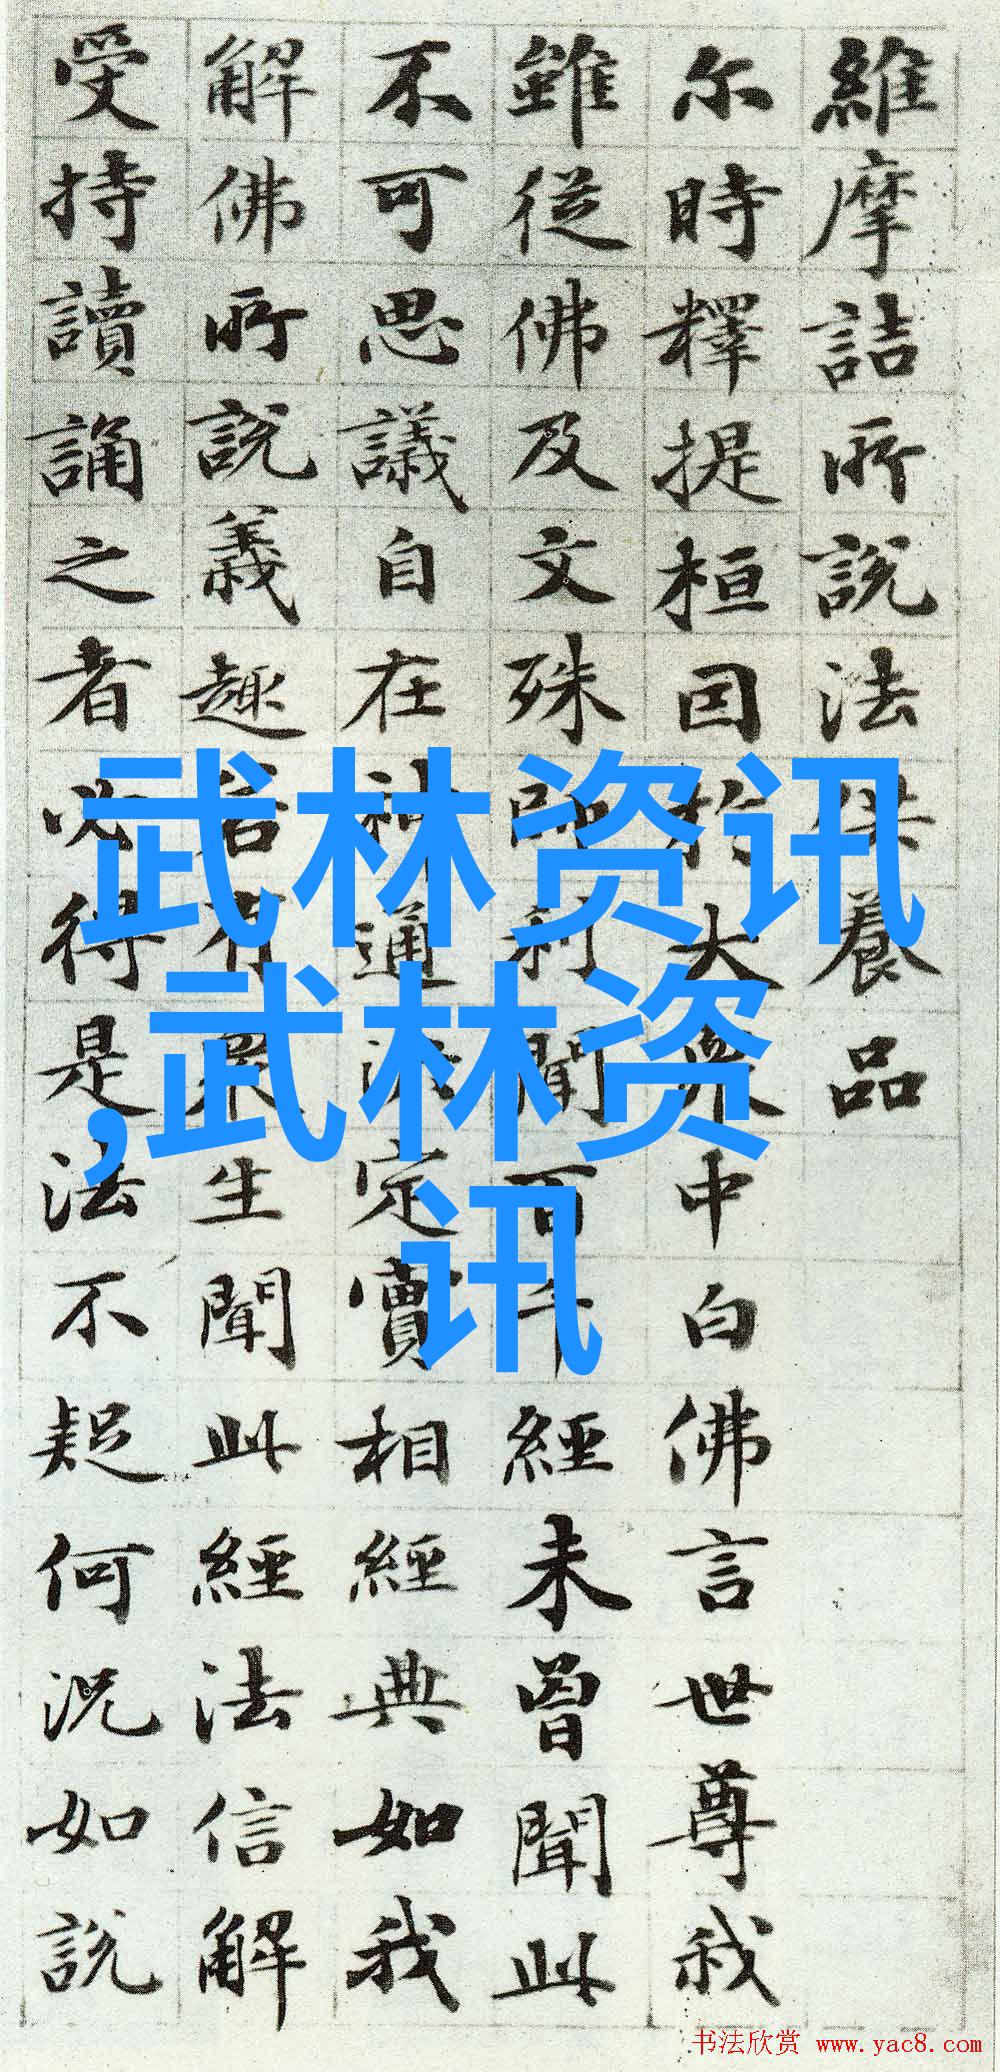 維摩詰所說法供養品
尔時釋提桓因於大衆中白佛言世尊我
雖從佛及文殊師利聞百千經未曾聞此
不可思議自在神通決定實相經典如我
解佛所說義趣若有衆生聞此經法信解
受持讀誦之者必得是法不疑何況如說
武林资讯
,武林资
讯
书法欣赏 www.yac8.com